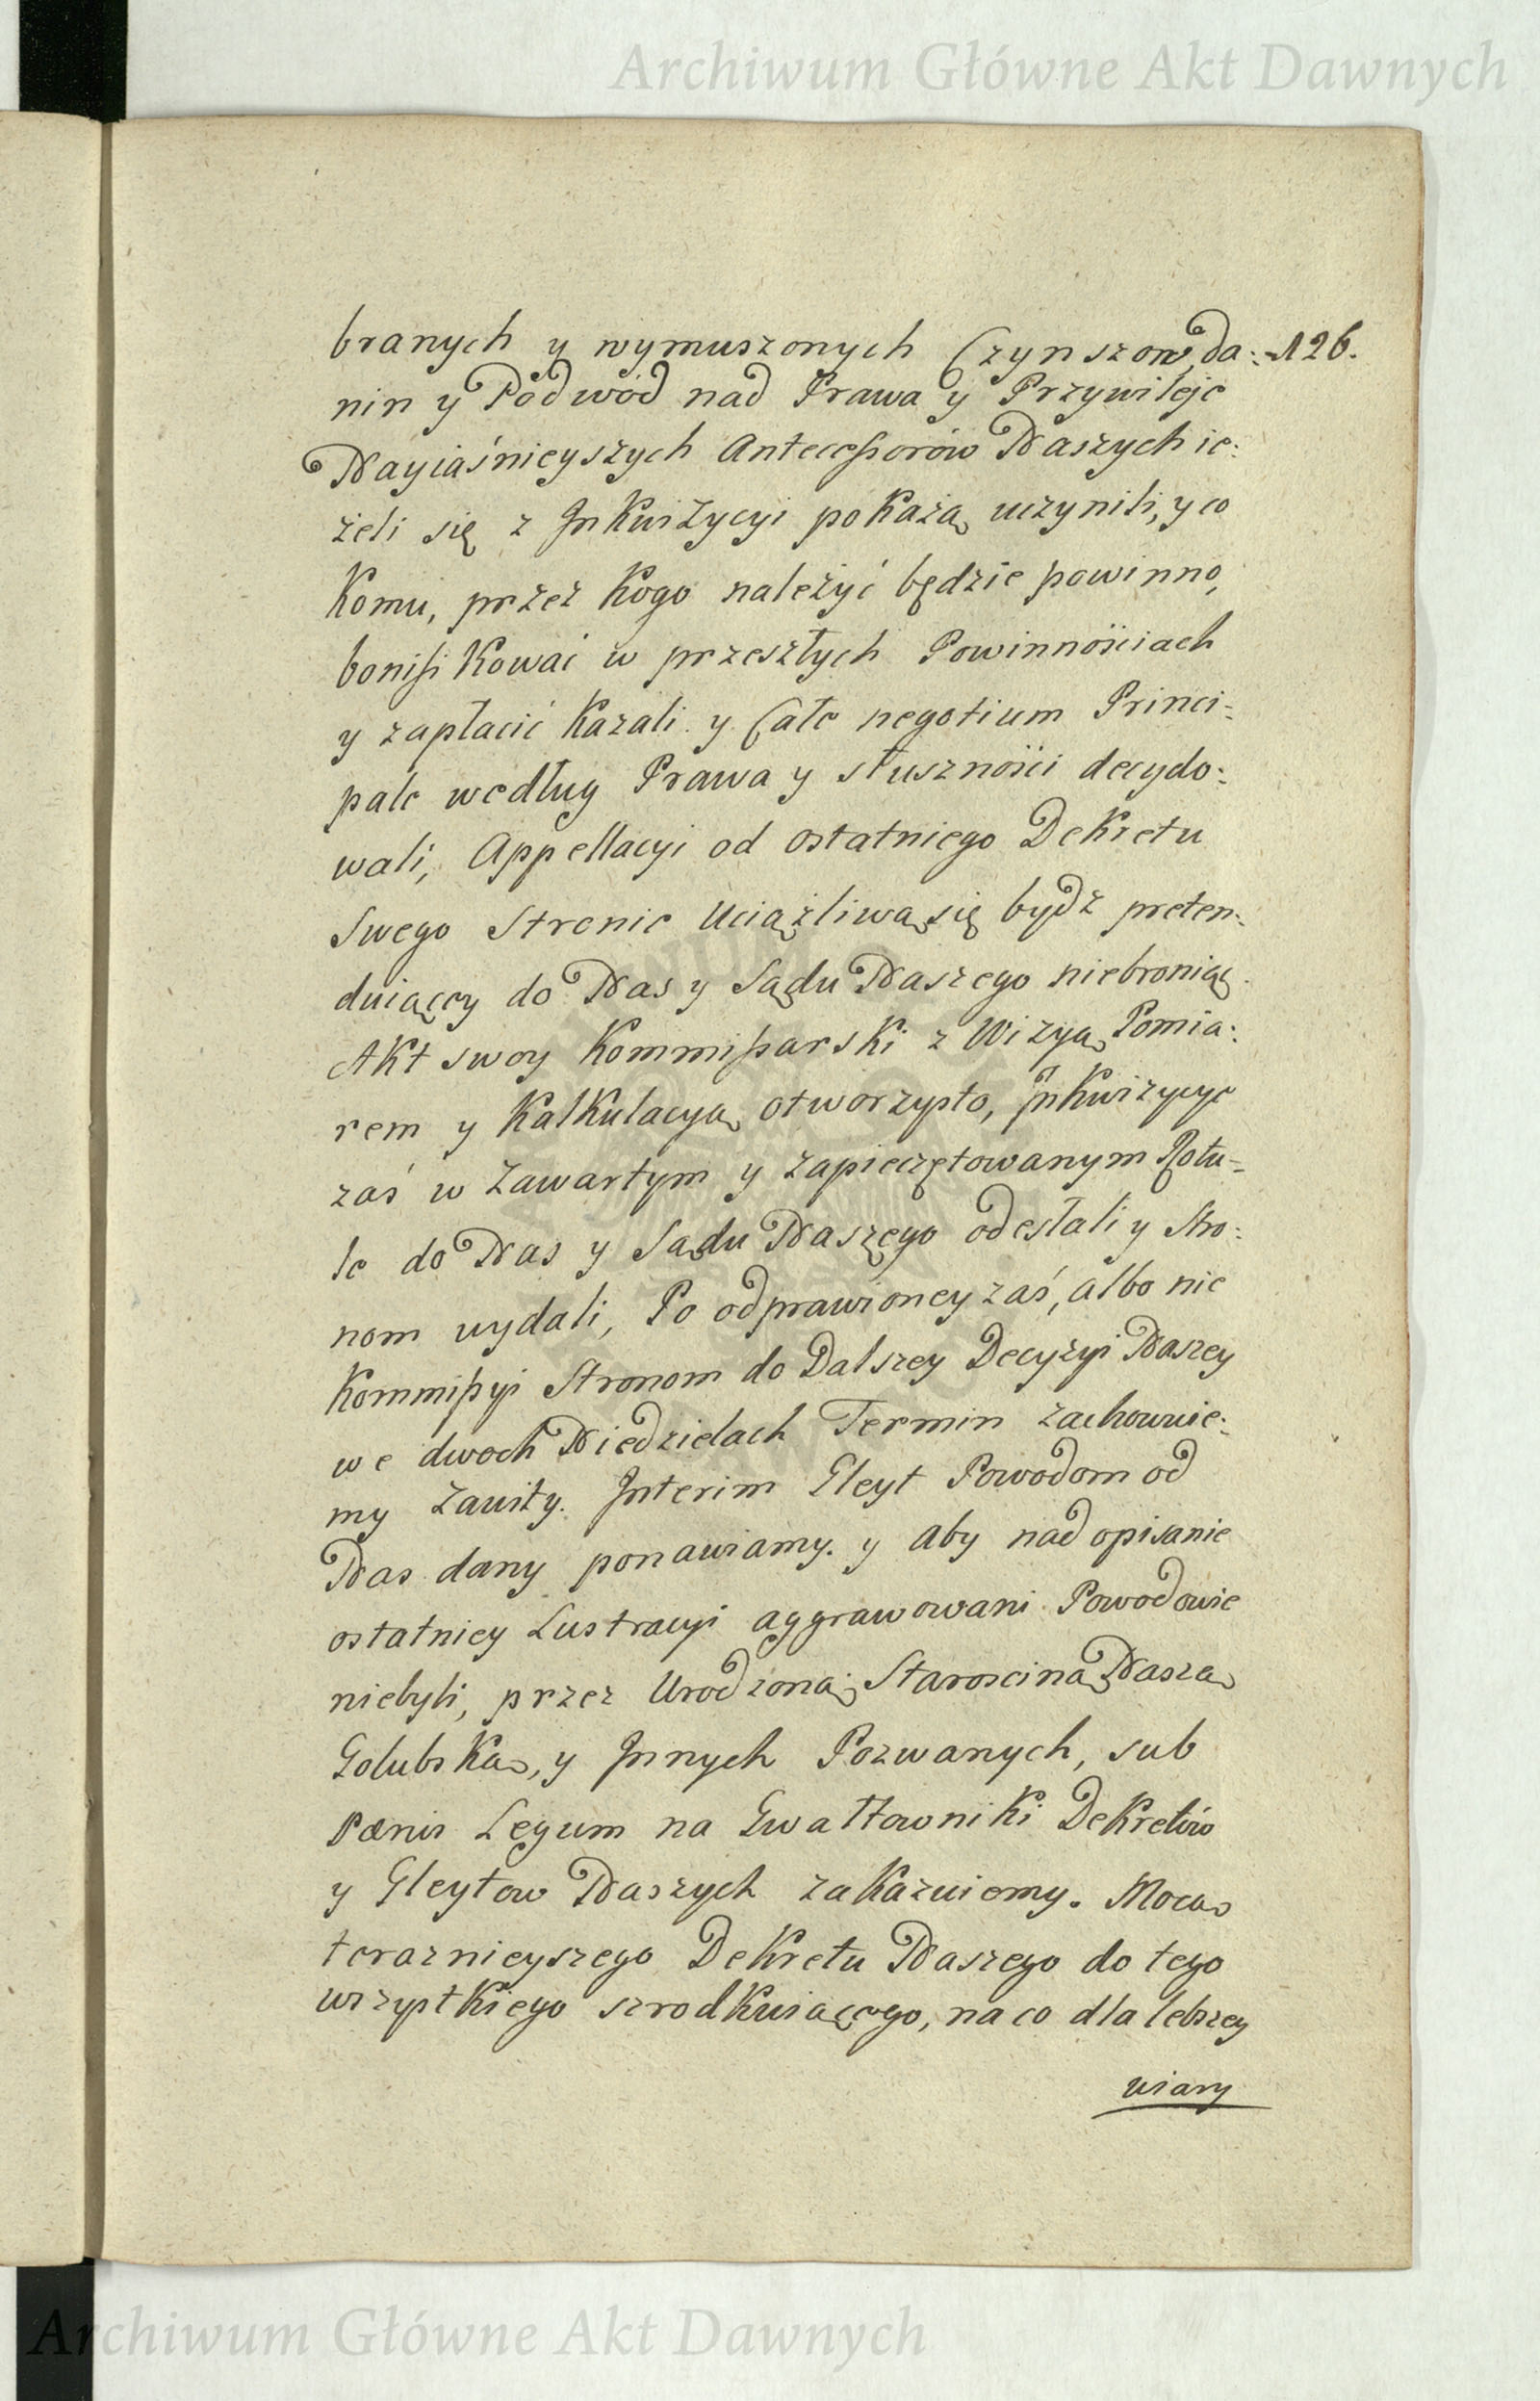 Archiwum Główne Akt Dawnych
branych y wymuszonych Czynszow, da:
126.
nin y Podwód nad Prawa y Przywileje
Nayiaśnieyszych Antecessorów Naszych ie:
żeli się z Inkwizycyi pokażą uczynili, y co
Komu, przez Kogo należyć będzie powinno,
bonifikować w przeszłych Powinnościach
y zapłacić kazali y Całe negotium Princi:
pale według Prawa y słuszności decydo:
wali, Appellacyi od ostatniego Dekretu
Swego Stronie Uciążliwą się bydź preten:
duiącey do Nas y Sądu Naszego niebroniąc
Akt swoy Kommissarski z Wizyą Pomia:
rem y Kalkulacyą otworzysto, Inkwizycye
zaś w Zawartym y Zapieczętowanym Rotu:
le do Nas y Sądu Naszego odesłali y Stro:
nom wydali, Po odprawioney zaś, albo nie
Kommissyi Stronom do Dalszey Decyzyi Naszey
we dwoch Niedzielach Termin zachowuie:
my Zawity. Interim Gleyt Powodom od
Nas dany ponawiamy. y aby nad opisanie
ostatniey Lustracyi aggrawowani Powodowie
niebyli, przez Urodzoną Starościną Naszą
Golubską, y Innych Pozwanych, sub
Pœnis Legum na Gwałtowniki Dekretów
y Gleytow Naszych zakazuiemy. Mocą
teraznieyszego Dekretu Naszego do tego
wszystkiego szrodkuiącego, na co dla lebszey
wiary
Archiwum Główne Akt Dawnych